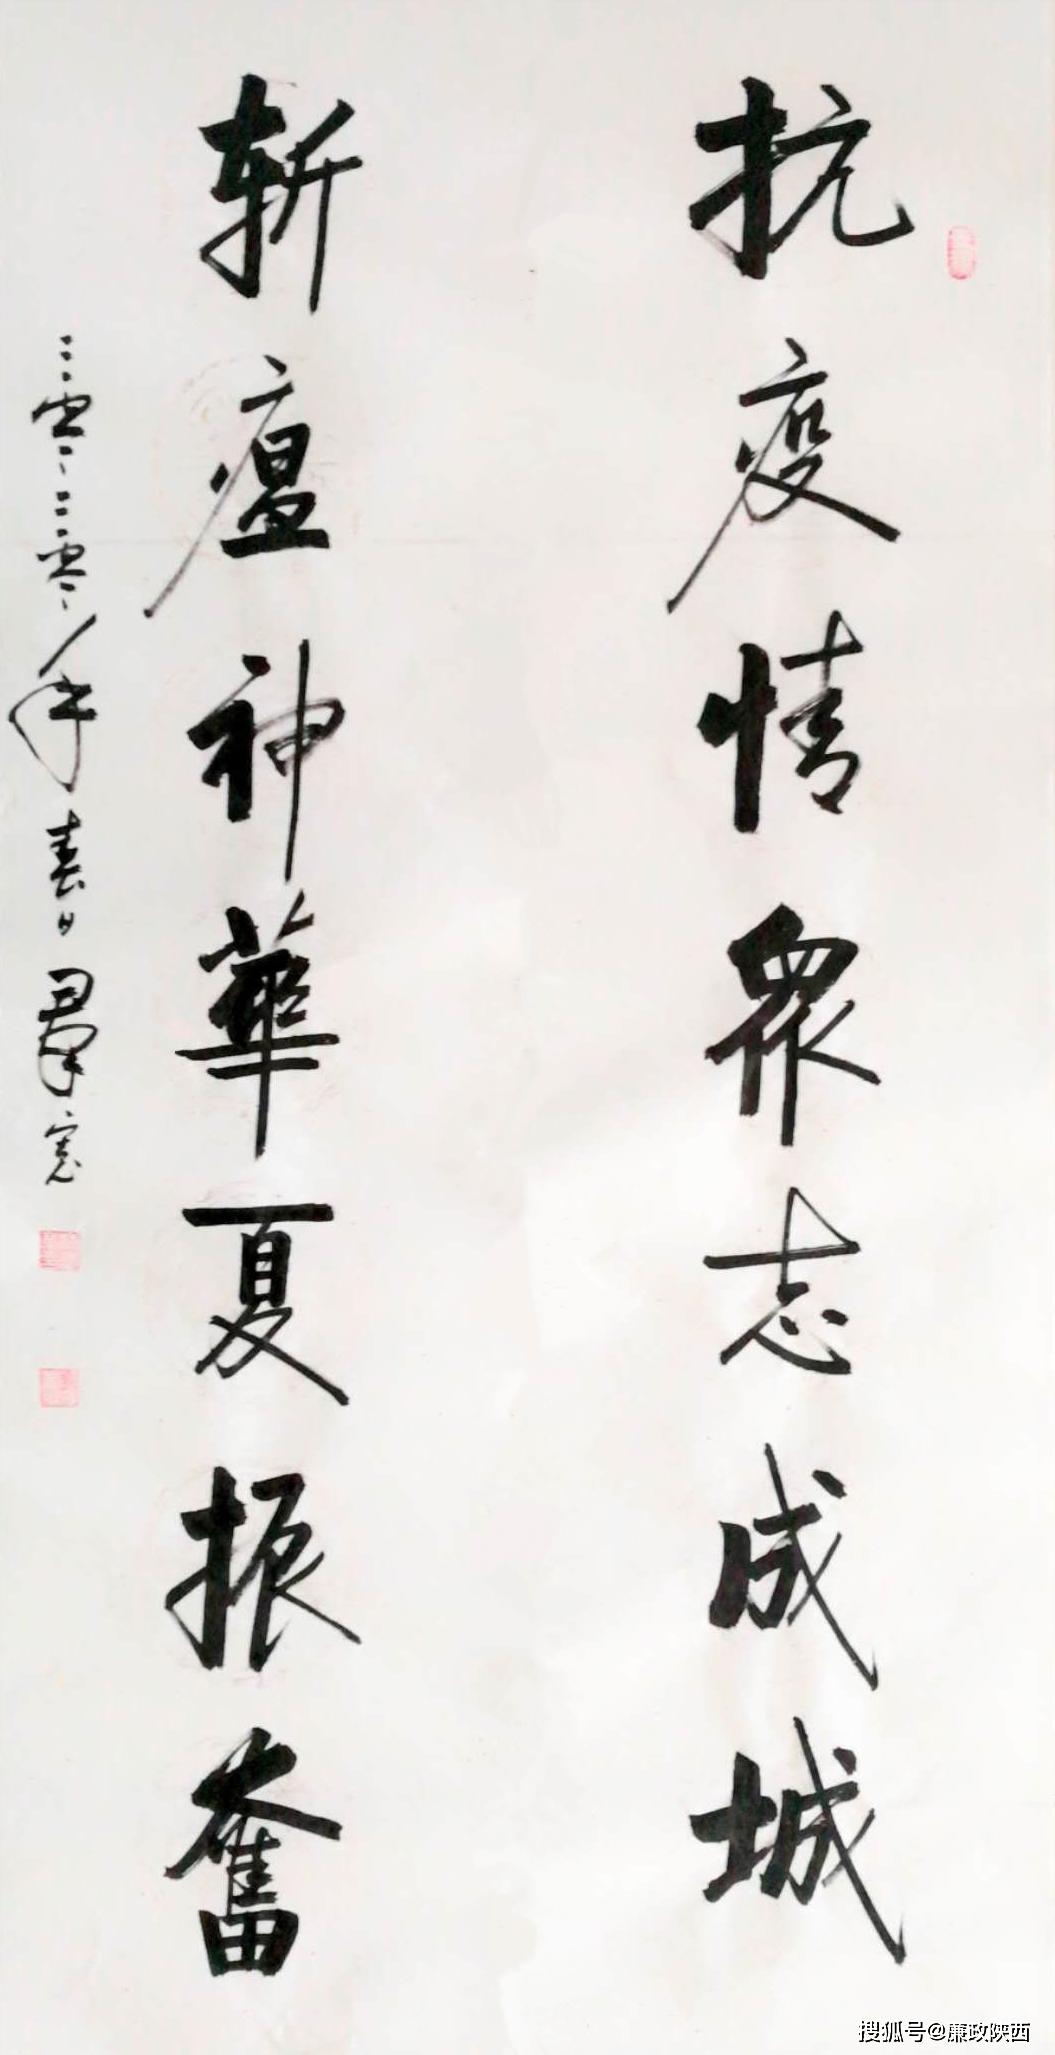 抗疫情眾志成城
斬瘟神華夏振奮
二零二零年春日
搜狐号@廉政陕西